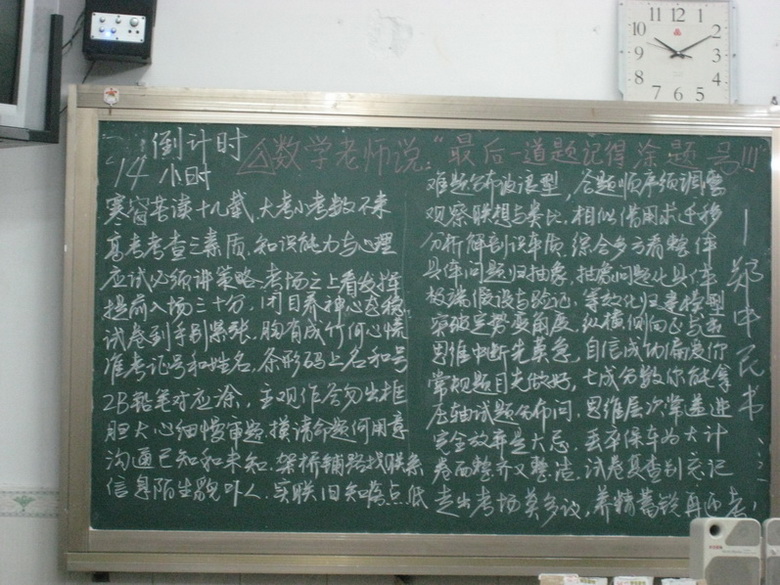 倒计时
14小时
数学老师说:"最后一道题记得涂题号!!!"
寒窗苦读十几载,大考小考数不来
高考考查三素质,知识能力与心理
应试必须讲策略,考场之上看发挥
提前入场三十分,闭目养神心态稳
试卷到手别紧张,胸有成竹何心慌
准考证号和姓名,条形码上名和号
2B铅笔对应涂,主观作答勿出框
胆大心细慢审题,摸清命题何用意
沟通已知和未知,架桥铺路找联系
信息陌生貌吓人,实联旧知落点低
难题分布波浪型,答题顺序须调整
观察联想与类比,相似借用求迁移
分析解剖识本质,综合多方看整体
具体问题归抽象,抽象问题化具体
极端假设与验证,等效化归建模型
突破定势变角度,纵横侧向正与逆
思维中断先莫急,自信成功偏爱你
常规题目先做好,七成分数你能拿
压轴试题分布问,思维层次常差进
完全放弃是大忌,丢卒保车为大计
卷面整齐又整洁,试卷复查别忘记
走出考场莫多议,养精蓄锐再迎考
—郑中民书
12
1
2
3
4
5
6
7
8
9
10
11